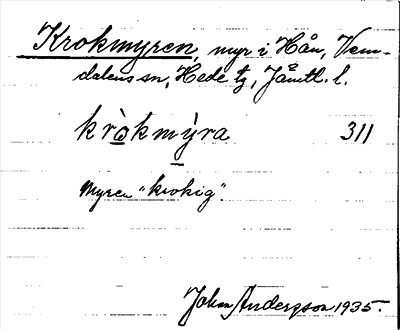 Krokmyren, myr i Hån, Vem-
dalens sn, Hede tg, Jämtl. l.
kròkmýra 311
Myren "krokig"
Johan Andersson 1935.